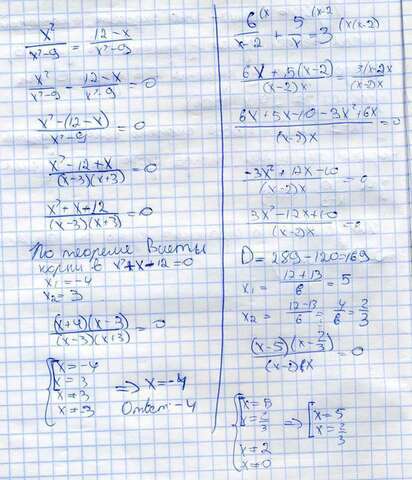 x²/(x²-9) = (12-x)/(x²-9)
x²/(x²-9) - (12-x)/(x²-9) = 0
(x²-(12-x))/(x²-9) = 0
(x²-12+x)/((x-3)(x+3)) = 0
(x²+x-12)/((x-3)(x+3)) = 0
По теореме Виеты
корни в x²+x-12=0
x₁=-4
x₂=3
((x+4)(x-3))/((x-3)(x+3)) = 0
x=-4
x=3
x≠3
x≠3
=> x=-4
Ответ: -4
6/(x-2) (x + 5/x (x-2 = 3 (x(x-2)
(6x+5(x-2))/((x-2)x) = 3(x-2)x/((x-2)x)
(6x+5x-10-3x²+6x)/((x-2)x) = 0
(-3x²+17x-10)/((x-2)x) = 0
(3x²-17x+10)/((x-2)x) = 0
D=289-120=169
x₁ = (17+13)/6 = 5
x₂ = (17-13)/6 = 4/6 = 2/3
((x-5)(x-2/3))/((x-2)x) = 0
x=5
x=2/3
x≠2
x≠0
=> x=5
x=2/3